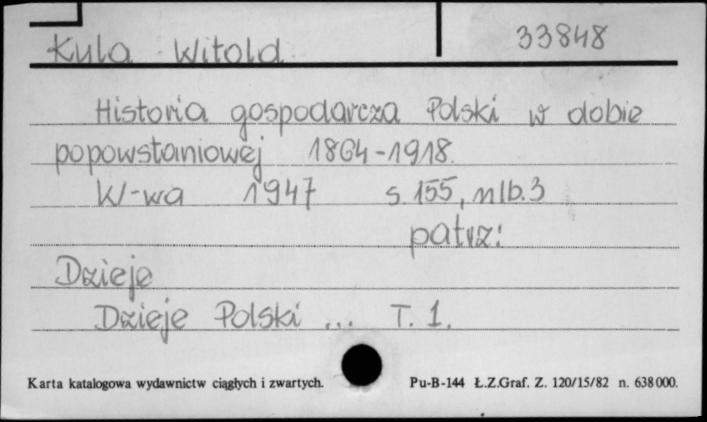 33848
Kula Witold
Historia gospodarcza Polski w dobie
popowstaniowej 1864-1918.
W-wa 1947 s. 155, nlb. 3
patrz:
Dzieje
Dzieje Polski ... T. 1.
Karta katalogowa wydawnictw ciągłych i zwartych. Pu-B-144 Ł.Z.Graf. Z. 120/15/82 n. 638 000.